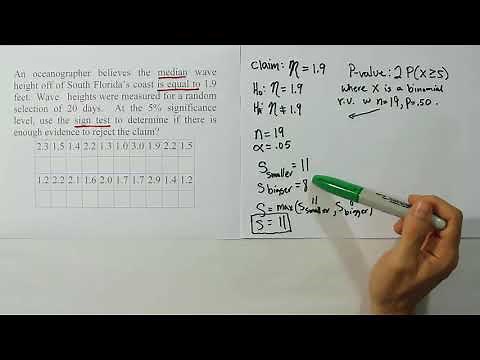 An oceanographer believes the median wave
height off of South Florida's coast is equal to 1.9
feet. Wave heights were measured for a random
selection of 20 days. At the 5% significance
level, use the sign test to determine if there is
enough evidence to reject the claim?
2.3 1.5 1.4 2.2 1.3 1.0 3.0 1.9 2.2 1.5
1.2 2.2 2.1 1.6 2.0 1.7 1.7 2.9 1.4 1.2
claim: η = 1.9
H₀: η = 1.9
H₁: η ≠ 1.9
n = 19
α = .05
S smaller = 11
S bigger = 8
S = max(S smaller, S bigger)
11 8
S = 11
P-value: 2P(X≥S)
where X is a binomial
r.v. w n=19, p=.50.